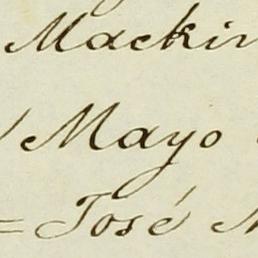 Mackin
Mayo
= José M